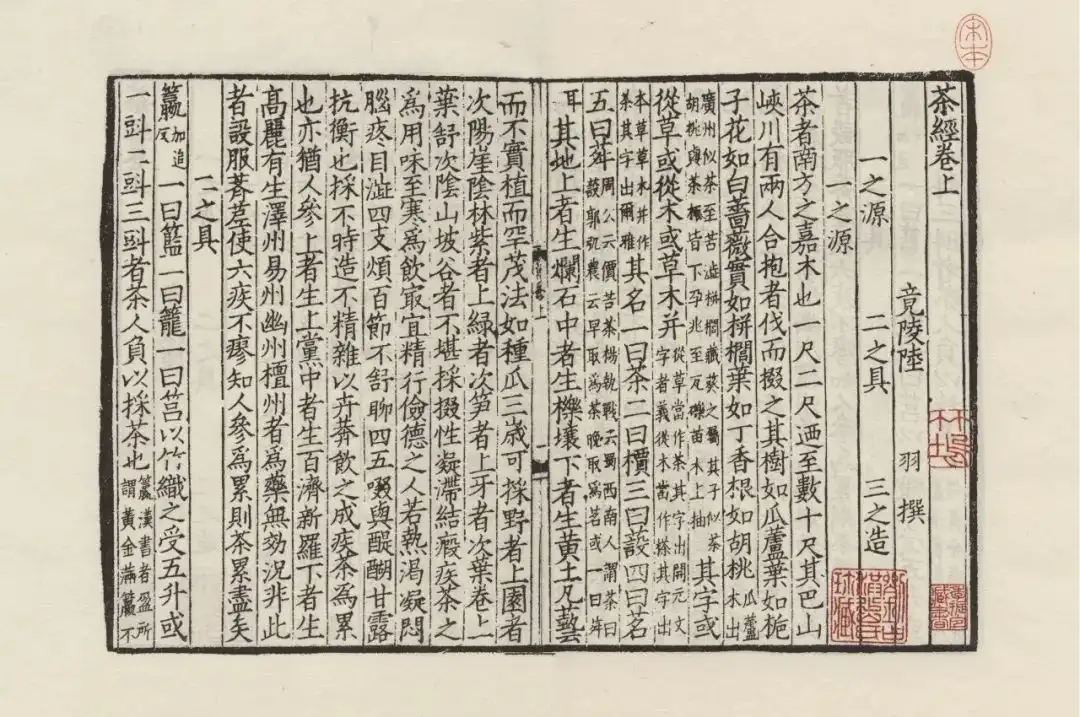 茶經卷上
竟陵陸 羽 撰
一之源 二之具 三之造
一之源
茶者南方之嘉木也一尺二尺迺至數十尺其巴山
峽川有兩人合抱者伐而掇之其樹如瓜蘆葉如梔
子花如白薔薇實如栟櫚葉如丁香根如胡桃瓜蘆木出
廣州似茶至苦澁栟櫚蒲葵之屬其子似茶
胡桃與茶根皆下孕兆至瓦礫苗木上抽其字或
從草或從木或草木并從草當作茶其字出開元文
字者義從木當作㮈其字出
本草草木并作
荼其字出爾雅其名一曰茶二曰檟三曰蔎四曰茗
五曰荈周公云檟苦茶楊執戟云蜀西南人謂茶曰
蔎郭弘農云早取爲茶晚取爲茗或一曰荈
耳其地上者生爛石中者生櫟壤下者生黃土凡藝
而不實植而罕茂法如種瓜三歲可採野者上園者
次陽崖隂林紫者上綠者次笋者上牙者次葉卷上
葉舒次陰山坡谷者不堪採掇性凝滯結瘕疾茶之
爲用味至寒爲飲冣宜精行儉德之人若熱渴凝悶
腦疼目澁四支煩百節不舒聊四五啜與醍醐甘露
抗衡也採不時造不精雜以卉莽飲之成疾茶為累
也亦猶人參上者生上黨中者生百濟新羅下者生
高麗有生澤州易州幽州檀州者為藥無効況非此
者設服薺苨使六疾不瘳知人參爲累則茶累盡矣
二之具
籯加追反一曰籃一曰籠一曰筥以竹織之受五升或
一㪷二㪷三㪷者茶人負以採茶也籯漢書音盈所
謂黃金滿籯不